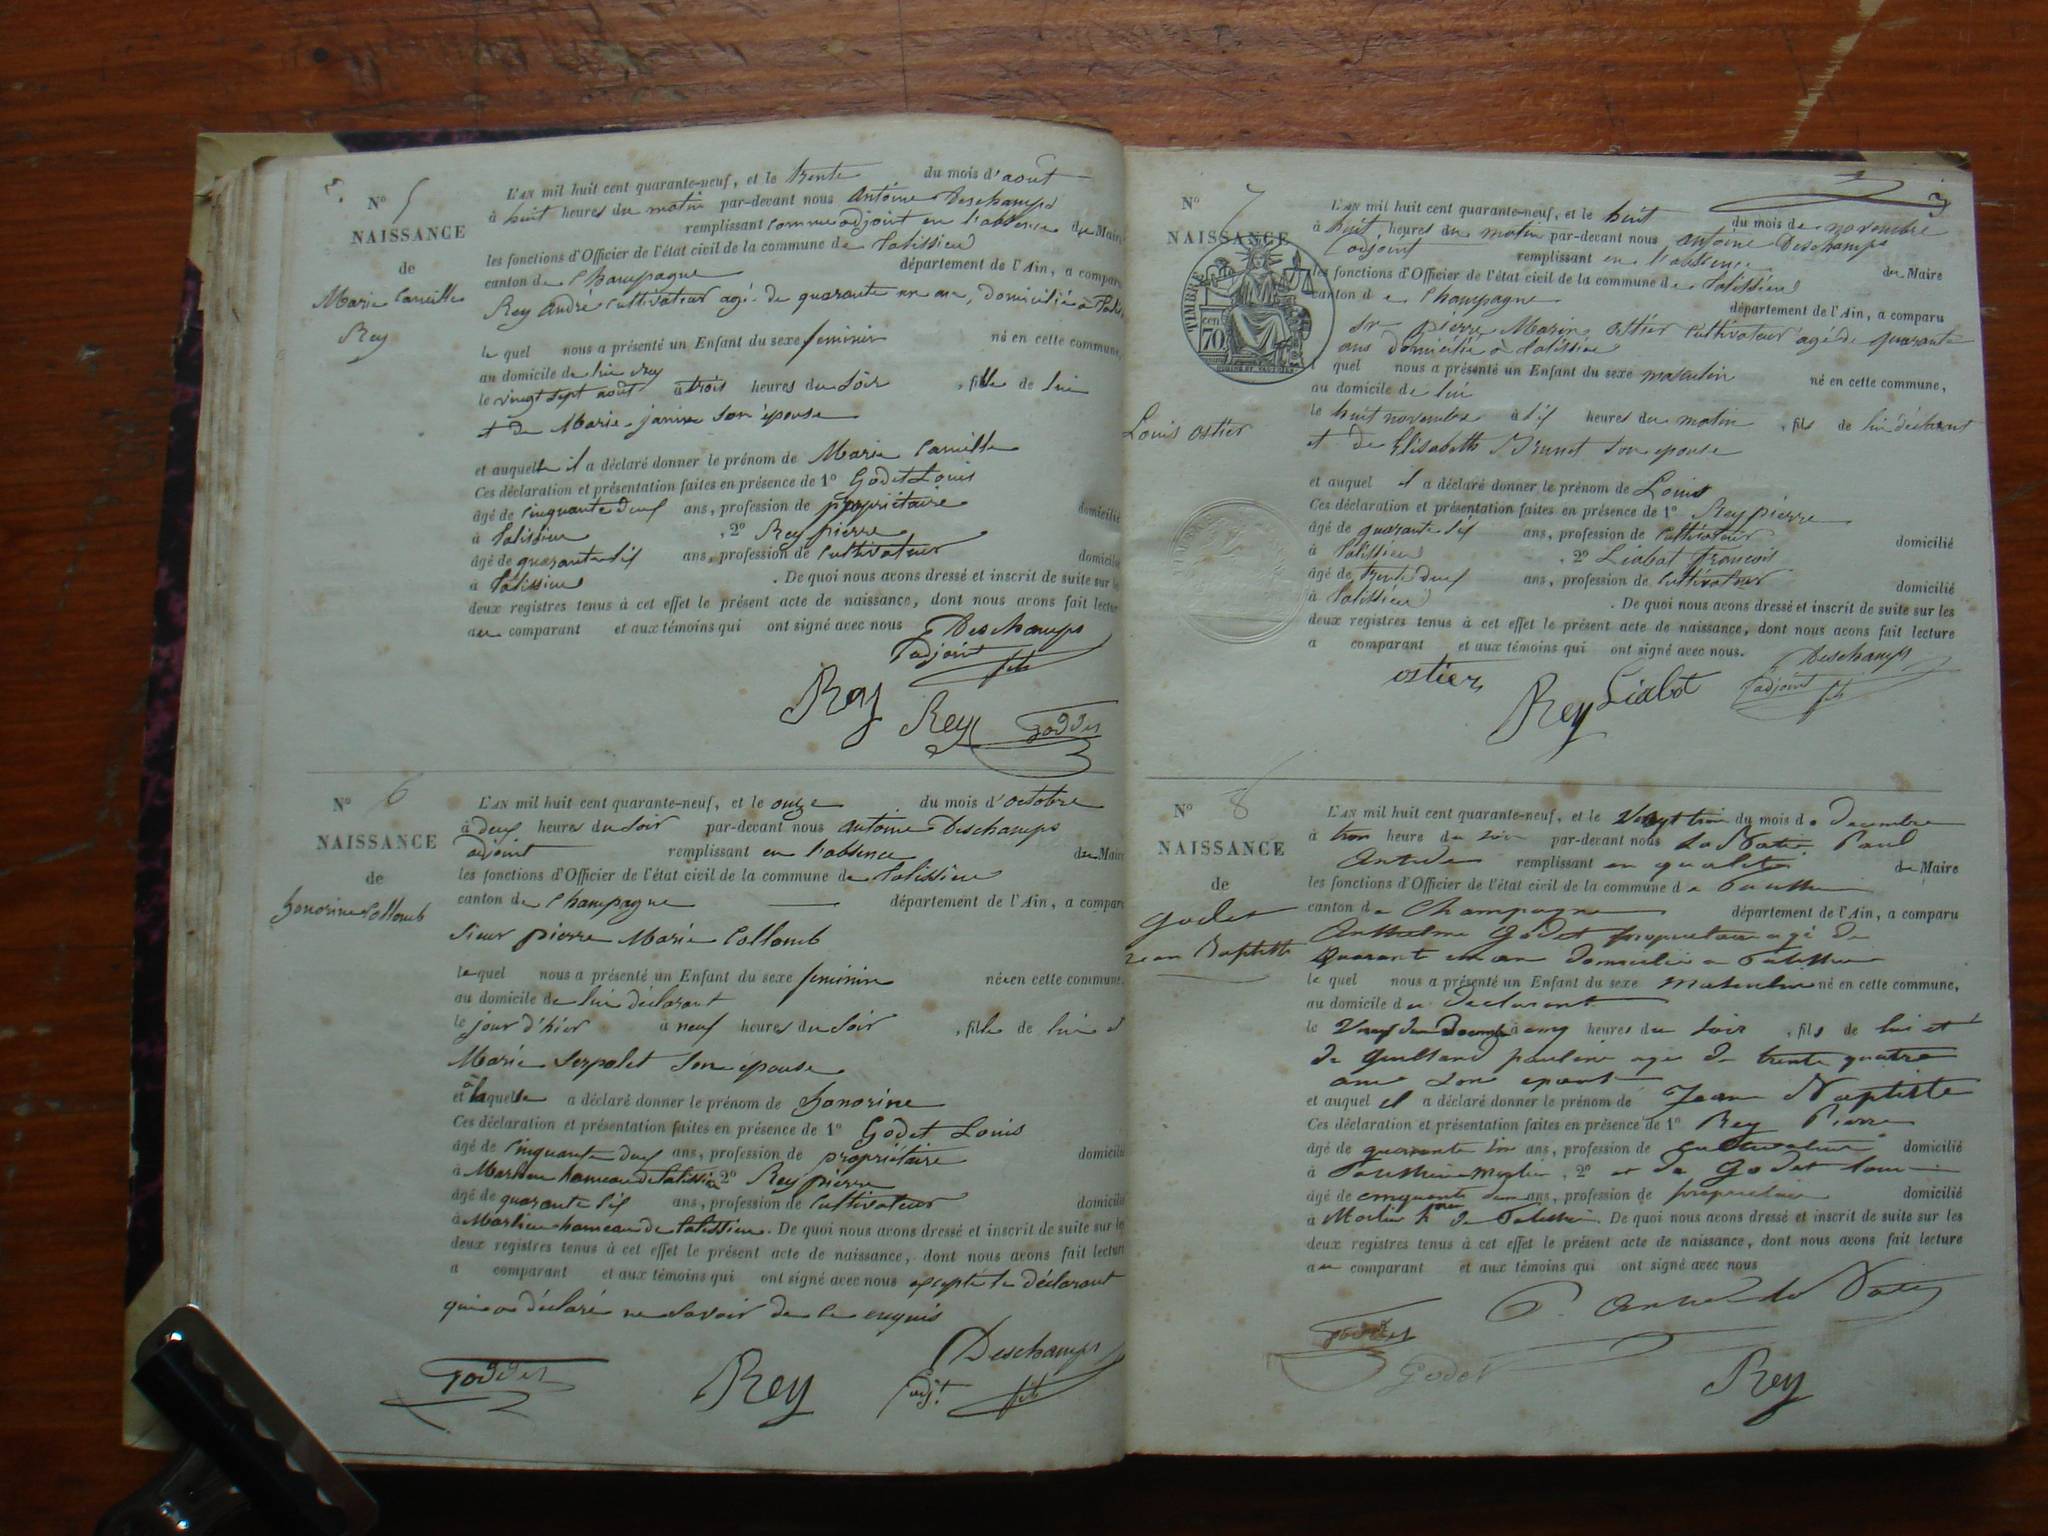 N° 5
NAISSANCE
de
Marie Camille
Rey
L'AN mil huit cent quarante-neuf, et le trente du mois d'août
à huit heures du matin par-devant nous Antoine Deschamps
remplissant comme adjoint en l'absence du Maire
les fonctions d'Officier de l'état civil de la commune de Talissieu
canton de Champagne département de l'Ain, a comparu
Rey André cultivateur agé de quarante un an, domicilié à
le quel nous a présenté un Enfant du sexe feminin né en cette commune,
au domicile de lui rey
le vingt sept août à trois heures du soir , fille de lui
et de Marie janin son épouse
et auquelle il a déclaré donner le prénom de Marie Camille
Ces déclaration et présentation faites en présence de 1° Godet Louis
âgé de cinquante deux ans, profession de propriétaire domicilié
à Talissieu , 2° Rey pierre
âgé de quarante six ans, profession de cultivateur domicilié
à Talissieu . De quoi nous avons dressé et inscrit de suite sur le
deux registres tenus à cet effet le présent acte de naissance, dont nous avons fait lecture
au comparant et aux témoins qui ont signé avec nous Deschamps
adjoint
Rey Rey Goddet
N° 6
NAISSANCE
de
honorine Collomb
L'AN mil huit cent quarante-neuf, et le onze du mois d'octobre
à deux heures du soir par-devant nous antoine Deschamps
adjoint remplissant en l'absence du Maire
les fonctions d'Officier de l'état civil de la commune de Talissieu
canton de Champagne département de l'Ain, a comparu
sieur pierre Marie Collomb
le quel nous a présenté un Enfant du sexe feminin né en cette commune,
au domicile de lui déclarant
le jour d'hier à neuf heures du soir , fille de lui et
Marie Serpolet son épouse
et à laquelle a déclaré donner le prénom de honorine
Ces déclaration et présentation faites en présence de 1° Godet Louis
âgé de cinquante deux ans, profession de propriétaire domicilié
à Marlieu hameau de Talissieu 2° Rey pierre
âgé de quarante six ans, profession de cultivateur domicilié
à Marlieu hameau de Talissieu. De quoi nous avons dressé et inscrit de suite sur le
deux registres tenus à cet effet le présent acte de naissance, dont nous avons fait lecture
a comparant et aux témoins qui ont signé avec nous excepté le déclarant
qui a déclaré ne savoir de ce enquis
Goddet Rey Deschamps
adj.t
3
N° 7
NAISSANCE
TIMBRE
70 cent
Louis ostier
L'AN mil huit cent quarante-neuf, et le huit du mois de novembre
à huit heures du matin par-devant nous antoine Deschamps
adjoint remplissant en l'absence du Maire
les fonctions d'Officier de l'état civil de la commune de Talissieu
canton de Champagne département de l'Ain, a comparu
sr pierre Marin ostier cultivateur agé de quarante
ans domicilié à Talissieu
l quel nous a présenté un Enfant du sexe masculin né en cette commune,
au domicile de lui
le huit novembre à six heures du matin , fils de lui déclarant
et de Elisabeth Brunet son epouse
et auquel il a déclaré donner le prénom de Louis
Ces déclaration et présentation faites en présence de 1° Rey pierre
âgé de quarante six ans, profession de cultivateur domicilié
à Talissieu , 2° Liabot françois
âgé de trente deux ans, profession de cultivateur domicilié
à Talissieu . De quoi nous avons dressé et inscrit de suite sur les
deux registres tenus à cet effet le présent acte de naissance, dont nous avons fait lecture
a comparant et aux témoins qui ont signé avec nous. Deschamps
ostier Rey Liabot adjoint
N° 8
NAISSANCE
de
Godet
Jean Baptiste
L'AN mil huit cent quarante-neuf, et le vingt trois du mois de Decembre
à trois heure du soir par-devant nous Paul
remplissant en qualité de Maire
les fonctions d'Officier de l'état civil de la commune de Talissieu
canton de Champagne département de l'Ain, a comparu
Anthelme Godet proprietaire agé de
quarante un an domicilié a Talissieu
le quel nous a présenté un Enfant du sexe masculin né en cette commune,
au domicile du declarant
le à cinq heures du soir , fils de lui et
de pauline agée de trente quatre
ans son epouse
et auquel il a déclaré donner le prénom de Jean Baptiste
Ces déclaration et présentation faites en présence de 1° Rey Pierre
âgé de quarante six ans, profession de cultivateur domicilié
à Talissieu , 2° et de Godet Louis
âgé de cinquante deux ans, profession de proprietaire domicilié
à Marlieu de Talissieu. De quoi nous avons dressé et inscrit de suite sur les
deux registres tenus à cet effet le présent acte de naissance, dont nous avons fait lecture
au comparant et aux témoins qui ont signé avec nous
Goddet
Godet Rey